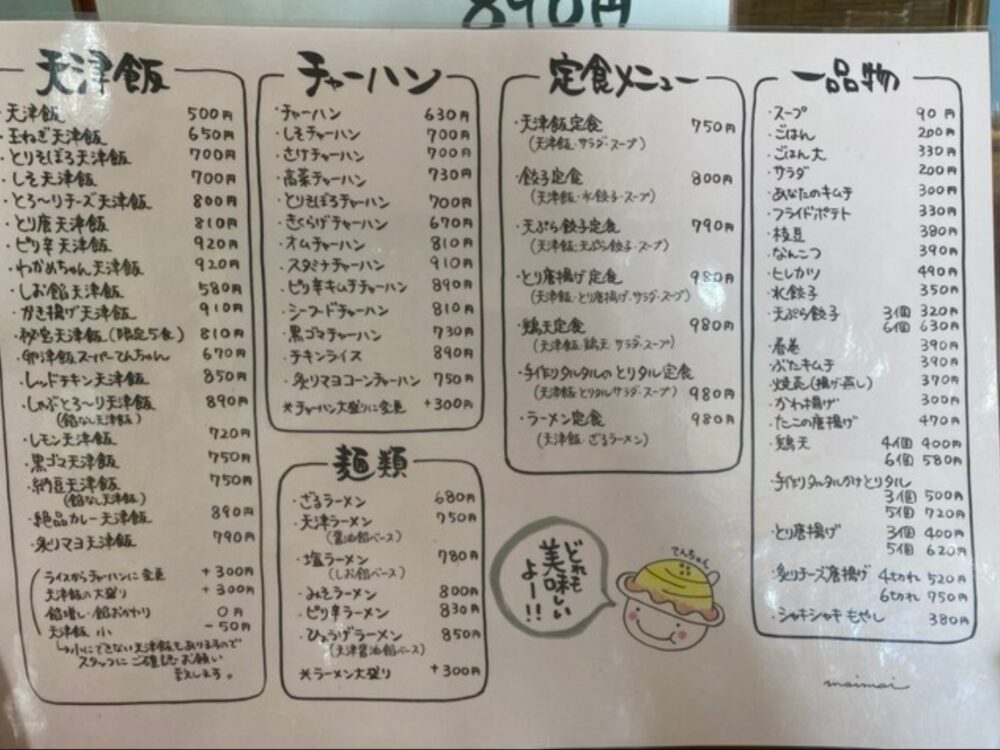 890円
天津飯
・天津飯 500円
・玉ねぎ天津飯 650円
・とりそぼろ天津飯 700円
・しそ天津飯 700円
・とろ〜りチーズ天津飯 800円
・とり唐天津飯 810円
・ピリ辛天津飯 920円
・わかめちゃん天津飯 920円
・しお餡天津飯 580円
・かき揚げ天津飯 910円
・秘宝天津飯(限定5食) 810円
・卵津飯スーパーてんちゃん 670円
・レッドチキン天津飯 850円
・しゃぶとろ〜り天津飯 890円
(餡なし天津飯)
・レモン天津飯 720円
・黒ゴマ天津飯 750円
・納豆天津飯 750円
(餡なし天津飯)
・絶品カレー天津飯 890円
・炙りマヨ天津飯 790円
ライスからチャーハンに変更 +300円
天津飯の大盛り +300円
餡増し・餡おかわり 0円
天津飯 小 -50円
↳小にできない天津飯もありますので
スタッフにご確認お願い
致します。
チャーハン
・チャーハン 630円
・しそチャーハン 700円
・さけチャーハン 700円
・高菜チャーハン 730円
・とりそぼろチャーハン 700円
・きくらげチャーハン 670円
・オムチャーハン 810円
・スタミナチャーハン 910円
・ピリ辛キムチチャーハン 890円
・シーフードチャーハン 810円
・黒ゴマチャーハン 730円
・チキンライス 890円
・炙りマヨコーンチャーハン 750円
※チャーハン大盛りに変更 +300円
麺類
・ざるラーメン 680円
・天津ラーメン 750円
(醤油餡ベース)
・塩ラーメン 780円
(しお餡ベース)
・みそラーメン 800円
・ピリ辛ラーメン 830円
・ひょうげラーメン 850円
(天津醤油餡ベース)
※ラーメン大盛り +300円
定食メニュー
・天津飯定食 750円
(天津飯・サラダ・スープ)
・餃子定食 800円
(天津飯・水餃子・スープ)
・天ぷら餃子定食 790円
(天津飯・天ぷら餃子・スープ)
・とり唐揚げ定食 980円
(天津飯・とり唐揚げ・サラダ・スープ)
・鶏天定食 980円
(天津飯・鶏天・サラダ・スープ)
・手作りタルタルのとりタル定食
(天津飯・とりタル・サラダ・スープ) 980円
・ラーメン定食 980円
(天津飯・ざるラーメン)
どれも
美味しい
よー!!
てんちゃん
一品物
・スープ 90円
・ごはん 200円
・ごはん大 330円
・サラダ 200円
・あなたのキムチ 300円
・フライドポテト 330円
・枝豆 380円
・なんこつ 390円
・ヒレカツ 490円
・水餃子 350円
・天ぷら餃子 3個 320円
6個 630円
・春巻 390円
・ぶたキムチ 390円
・焼売(揚げ・蒸し) 370円
・かわ揚げ 300円
・たこの唐揚げ 470円
・鶏天 4個 400円
6個 580円
・手作りタルタルがけとりタル
3個 500円
5個 720円
・とり唐揚げ 3個 400円
5個 620円
・炙りチーズ唐揚げ 4切れ 520円
6切れ 750円
・シャキシャキもやし 380円
maimai